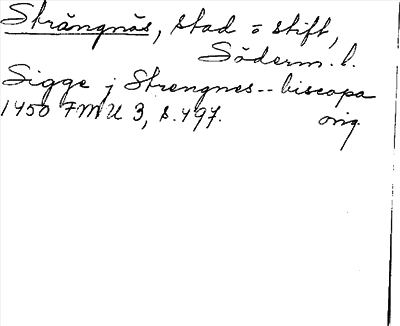 Strängnäs, stad o stift,
Söderm. l.
Sigge j Strengnes -- biscopa
1450 FMU 3, s. 497. orig.